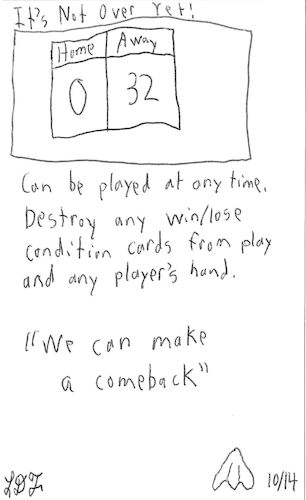 It's Not Over Yet!
Home Away
0 32
Can be played at any time.
Destroy any win/lose
condition cards from play
and any player's hand.
"We can make
a comeback"
10/14